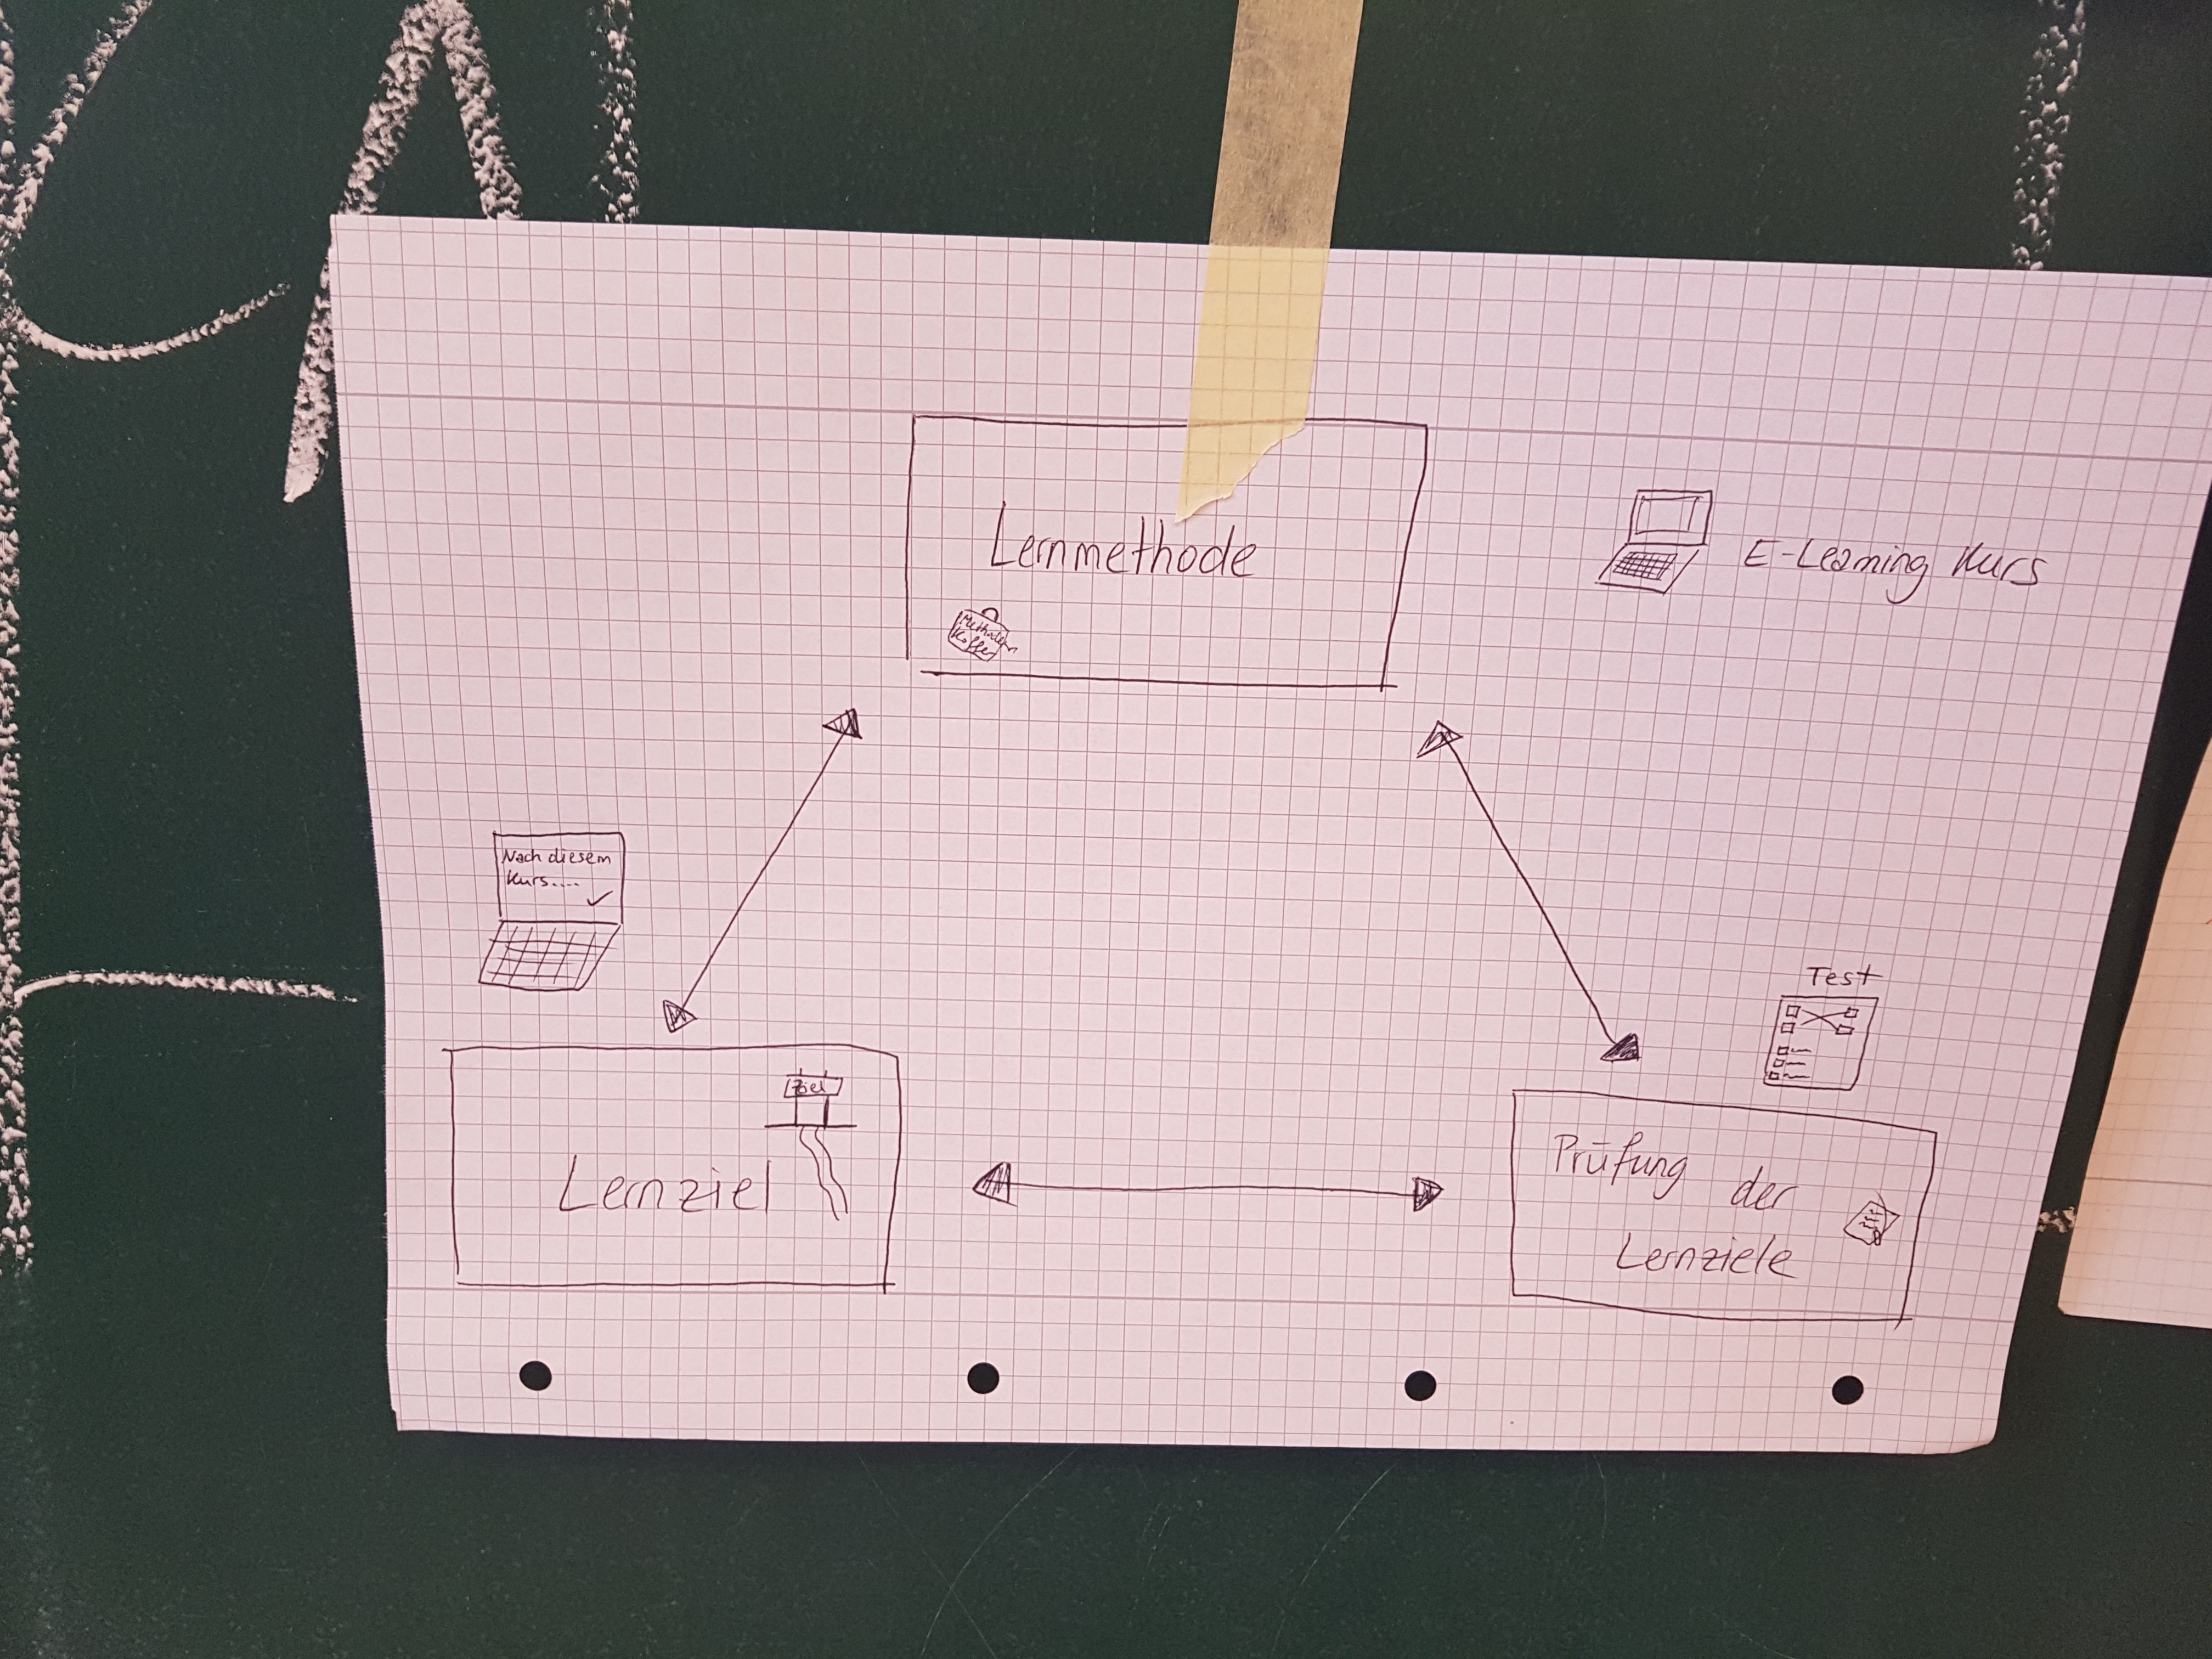 Lernmethode
Methoden
Koffer
E-Learning Kurs
Nach diesem
Kurs....
Test
Ziel
Lernziel
Prüfung der
Lernziele